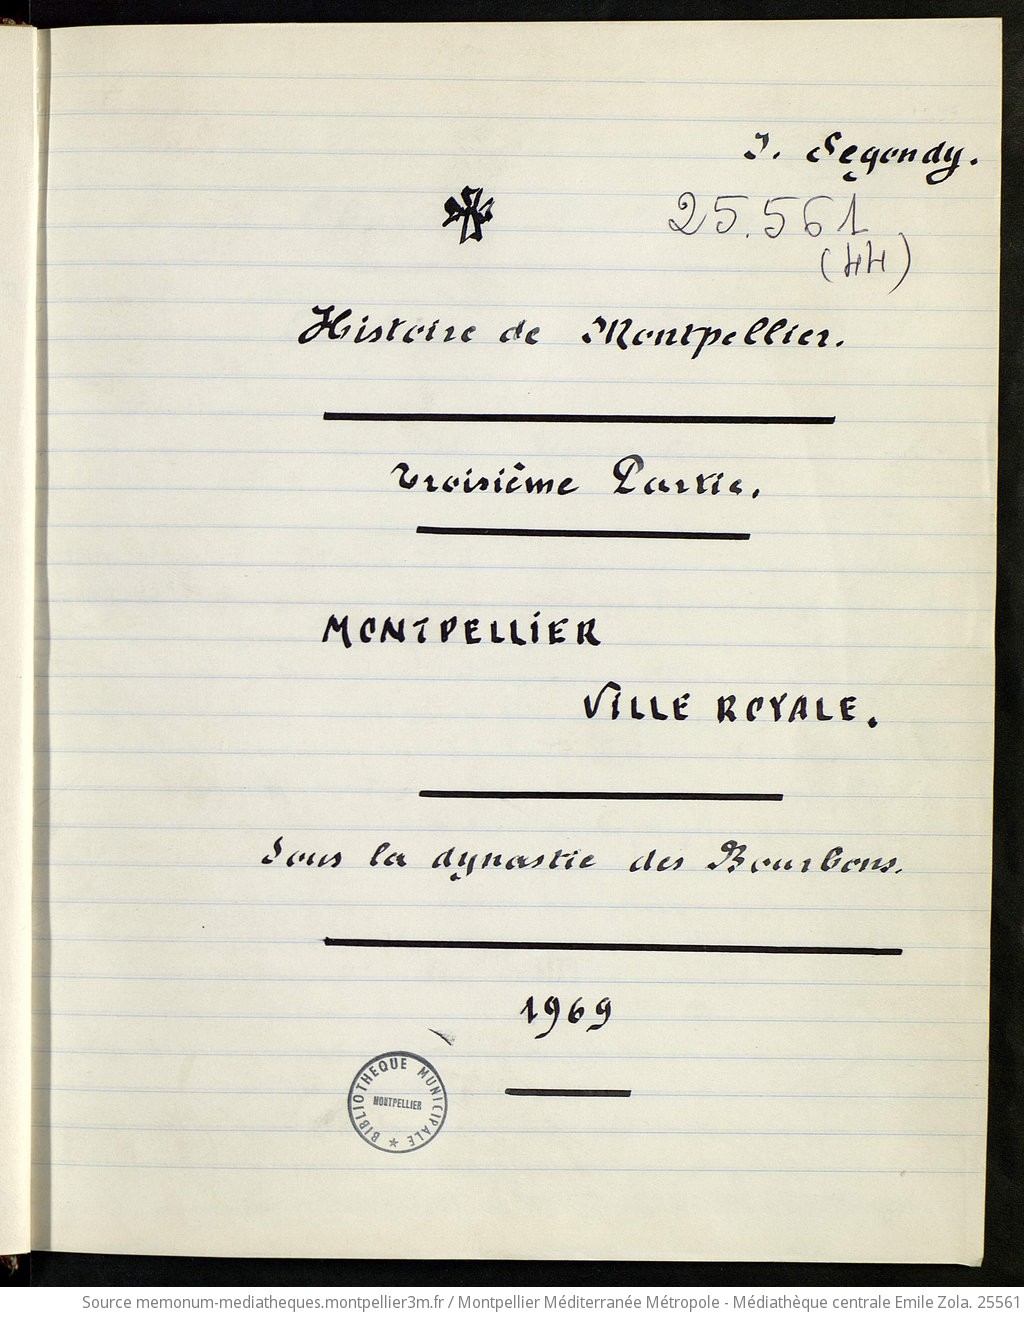 J. Segondy.
25.561
(44)
Histoire de Montpellier.
Troisième Partie.
MONTPELLIER
VILLE ROYALE.
Sous la dynastie des Bourbons.
1969
BIBLIOTHEQUE MUNICIPALE
MONTPELLIER
Source memonum-mediatheques.montpellier3m.fr / Montpellier Méditerranée Métropole - Médiathèque centrale Emile Zola. 25561